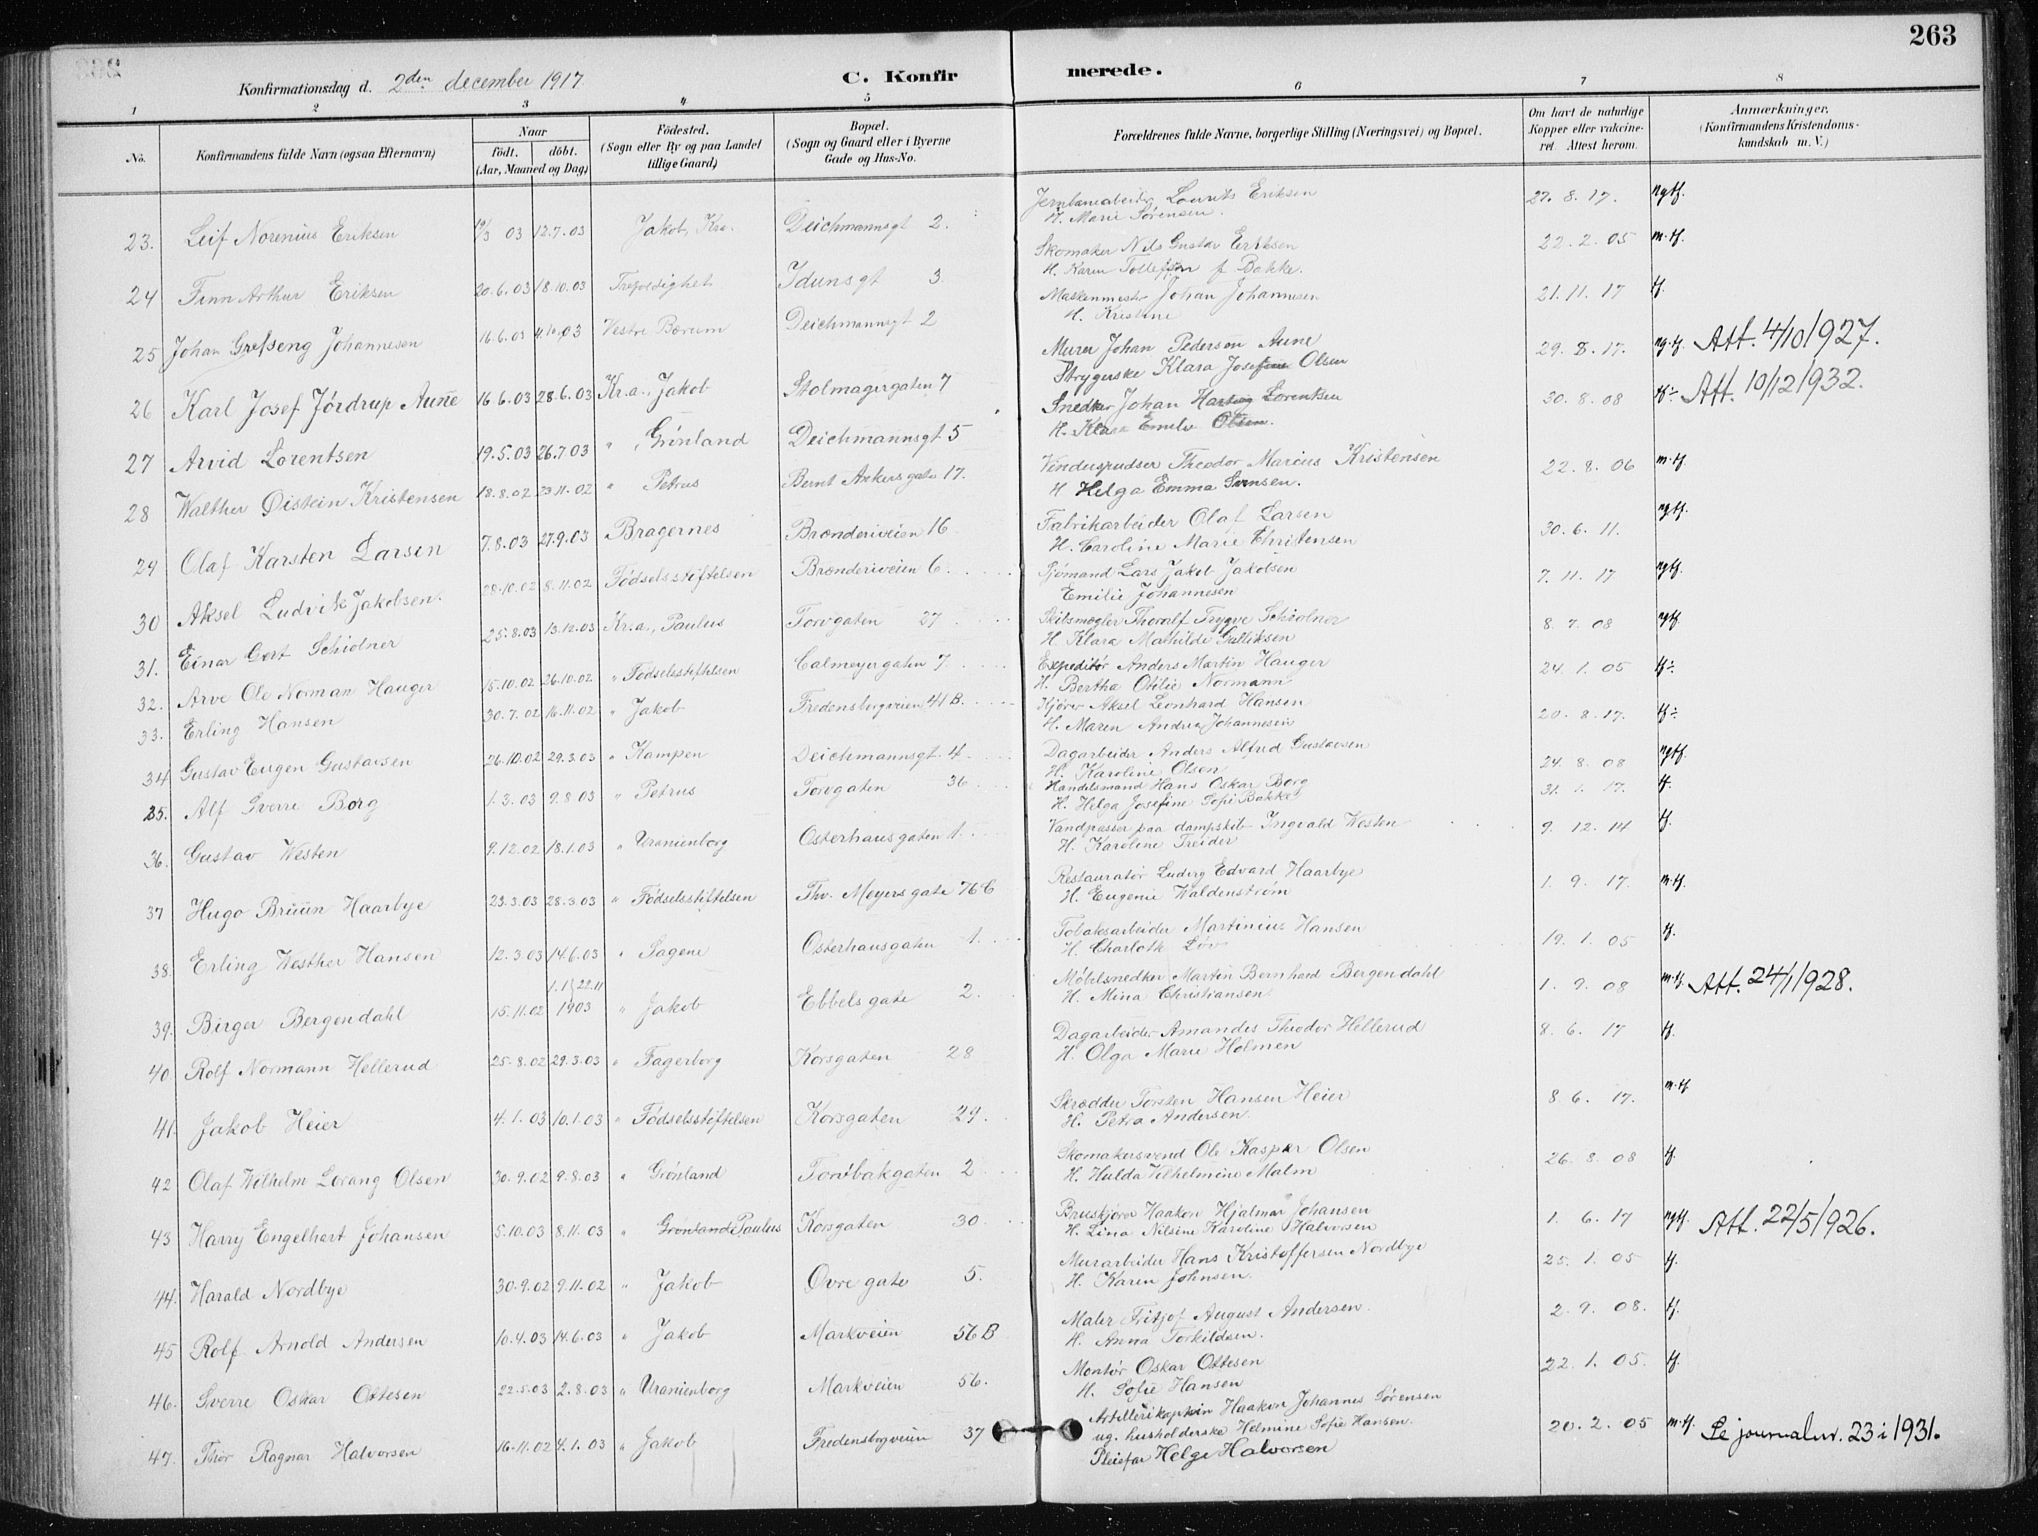 263
Konfirmationsdag d. 2den december 1917
C. Konfirmerede.
1 2 3 4 5 6 7 8
No. Konfirmandens fulde Navn (ogsaa Efternavn) Naar födt. döbt. (Aar, Maaned og Dag) Födested. (Sogn eller By og paa Landet tillige Gaard) Bopæl. (Sogn og Gaard eller i Byerne Gade og Hus-No. Forældrenes fulde Navne, borgerlige Stilling (Næringsvei) og Bopæl. Om havt de naturlige Kopper eller vakcineret. Attest herom. Anmærkninger. (Konfirmandens Kristendomskundskab m. V.)
23. Leif Norenius Eriksen 10/3 03 12.7.03 Jakob, Kra. Deichmannsgt 2. Jernbanearbeider Lourits Eriksen 27.8.17. ngtf.
H. Marie Sörensen.
24 Finn Arthur Eriksen 20.6.03 18.10.03 Trefoldighet Idunsgt 3. Skomaker Nils Gustav Eriksen 22.2.05 m.tf.
H. Karen Tollefsen f Bakke.
25 Johan Grefseng Johannesen 16.6.03 4.10.03 Vestre Bærum Deichmannsgt 2 Maskenmester Johan Johannesen 21.11.17 tf.
H. Kristine
26 Karl Josef Jördrup Aune 16 6.03 28.6.03 Kr.a., Jakob Stolmagergaten 7 Murer Johan Pederson Aune 29.8.17. ng.tf. Att. 4/10/1927.
Strygerske Klara Josefine Olsen
27 Arvid Lorentsen 19.5.03 26.7.03 " Grönland Deichmannsgt 5 Snedker Johan Hartvig Lorentsen 30.8.08 tf÷ Att. 10/12/1932.
H. Klara Emilie Olsen.
28 Walther Öistein Kristensen 18.8.02 23.11.02 " Petrus Bernt Ankersgate 17. Vinduspudser Theodor Marcius Kristensen 22.8.06 m.tf.
H Helga Emma Svensen.
29 Olaf Karsten Larsen 7.8.03 27.9.03 Bragernes Brænderiveien 16 Fabrikarbeider Olaf Larsen 30.6.11. ngtf.
H. Caroline Marie Christensen
30 Aksel Ludvik Jakobsen. 28.10.02 8.11.02 Födselsstiftelsen Brænderiveien 6. Sjömand Lars Jakob Jakobsen 7.11.17 ngtf.
Emilie Johannesen
31. Einar Gert Schiolner 25.8.03 13.12.03 Kr.a., Paulus Torvgaten 27 Skibsmægler Thoralf Trygve Schiolner 8.7.08 ngtf
H. Klara Mathilde Gulliksen
32. Arve Ole Norman Hauger 15.10.02 26.10.02 " Födselsstiftelsen Calmeyergaten 7. Expeditör Anders Martin Hauger 24.1.05 tf÷
H. Bertha Otilie Normann
33. Erling Hansen 30.7.02 16.11.02 " Jakob Fredensborgveien 41 B. Kjörer Aksel Leonhard Hansen 20.8.17. tf÷
H. Maren Andrea Johannesen
34 Gustav Eugen Gustavsen 26.10.02 29.3.03 " Kampen Deichmannsgt 4. Dagarbeider Anders Alfred Gustavsen 24.8.08 ngtf.
H. Karoline Olsen
35. Alf Sverre Borg 1.3.03 9.8 03 " Petrus Torvgaten 36 Handelsmand Hans Oskar Borg 31.1.17. tf.
H. Helga Josefine Sofie Bakke
36. Gustav Westen 9.12.02 18.1.03 " Uranienborg Osterhausgaten 1. Vandpasser paa dampskib Ingvald Westen 9.12.14 tf.
H. Karoline Treider
37 Hugo Bruun Haarbye 23.3.03 28.3.03 " Födselsstiftelsen Thv. Meyersgate 76 C Restauratör Ludvig Edvard Haarbye 1.9.17. m.tf.
H. Eugenie Waldenström
38. Erling Westher Hansen 12.3.03 14.6.03 " Sagene Osterhausgaten 1. Tobaksarbeider Martinius Hansen 19.1.05 tf.
H. Charlotte Löv
39. Birger Bergendahl 15.11.02 1.1 22.11 1903 " Jakob Ebbelsgate 2. Möbelsnedker Martin Bernhard Bergendahl 1.9.08 m.tf Att. 24/1/1928.
H. Mina Christiansen
40 Rolf Normann Hellerud 25.8.02 29.3.03 " Fagerborg Korsgaten 28 Dagarbeider Amandes Theodor Hellerud 8.6.17 tf.
H. Olga Marie Holmen
41. Jakob Heier 4.1.03 10.1.03 " Födselsstiftelsen Korsgaten 29. Skrædder Torsten Hansen Heier 8 6.17. m.tf
H. Petra Andersen
42 Olaf Wilhelm Lorang Olsen 30.9.02 9.8.03 " Grönland Torvbakgaten 2 Skomakersvend Ole Kasper Olsen 26.8.08 tf.
H. Hulda Vilhelmine Malm
43 Harry Engelhart Johansen 5.10.03 8.11.03 " Paulus Korsgaten 30. Bruskjörer Haakon Hjalmar Johansen 1.6.17 ngtf. Att. 22/5/1926.
H. Lina Nilsine Karoline Halvorsen
44. Harald Nordbye 30.9.02 9.11.02 " Jakob Övregate 5. Murarbeider Hans Kristoffersen Nordbye 25.1.05 tf.
H. Karen Johnsen
45 Rolf Arnold Andersen 10.4.03 14.6.03 " Jakob Markveien 56 B Maler Fritjof August Andersen 2.9.08. tf.
H. Anna Torkildsen.
46. Sverre Oskar Ottesen 22.5.03 2.8.03 " Uranienborg Markveien 56. Montör Oskar Ottesen 22.1.05. tf.
H. Sofie Hansen
47. Thor Ragnar Halvorsen 16.11.02 4.1.03 " Jakob Fredensborgveien 37 Artillerikaptein Haakon Johannes Sörensen 20.2.05 m.tf. Se journalnr. 23 i 1931.
ug. husholderske Helmine Sofie Hansen.
Pleiefar Helge Halvorsen